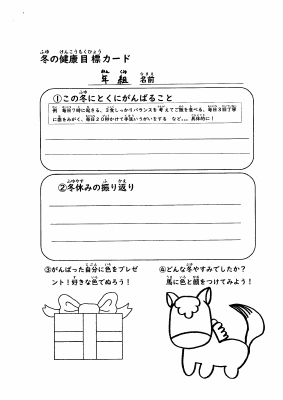 ふゆ けんこうもくひょう
冬の健康目標カード
ねん くみ なまえ
年 組 名前
ふゆ
①この冬にとくにがんばること
例 毎日7時に起きる、食しっかりバランスを考えてご飯を食べる、毎日3回丁寧
に歯をみがく、毎日20秒かけて手洗いうがいをする など。。。具体的に！
ふゆやす ふ かえ
②冬休みの振り返り
じぶん いろ
③がんばった自分に色をプレゼ
ント！好きな色でぬろう！
ふゆ
④どんな冬やすみでしたか？
うま いろ かお
馬に色と顔をつけてみよう！